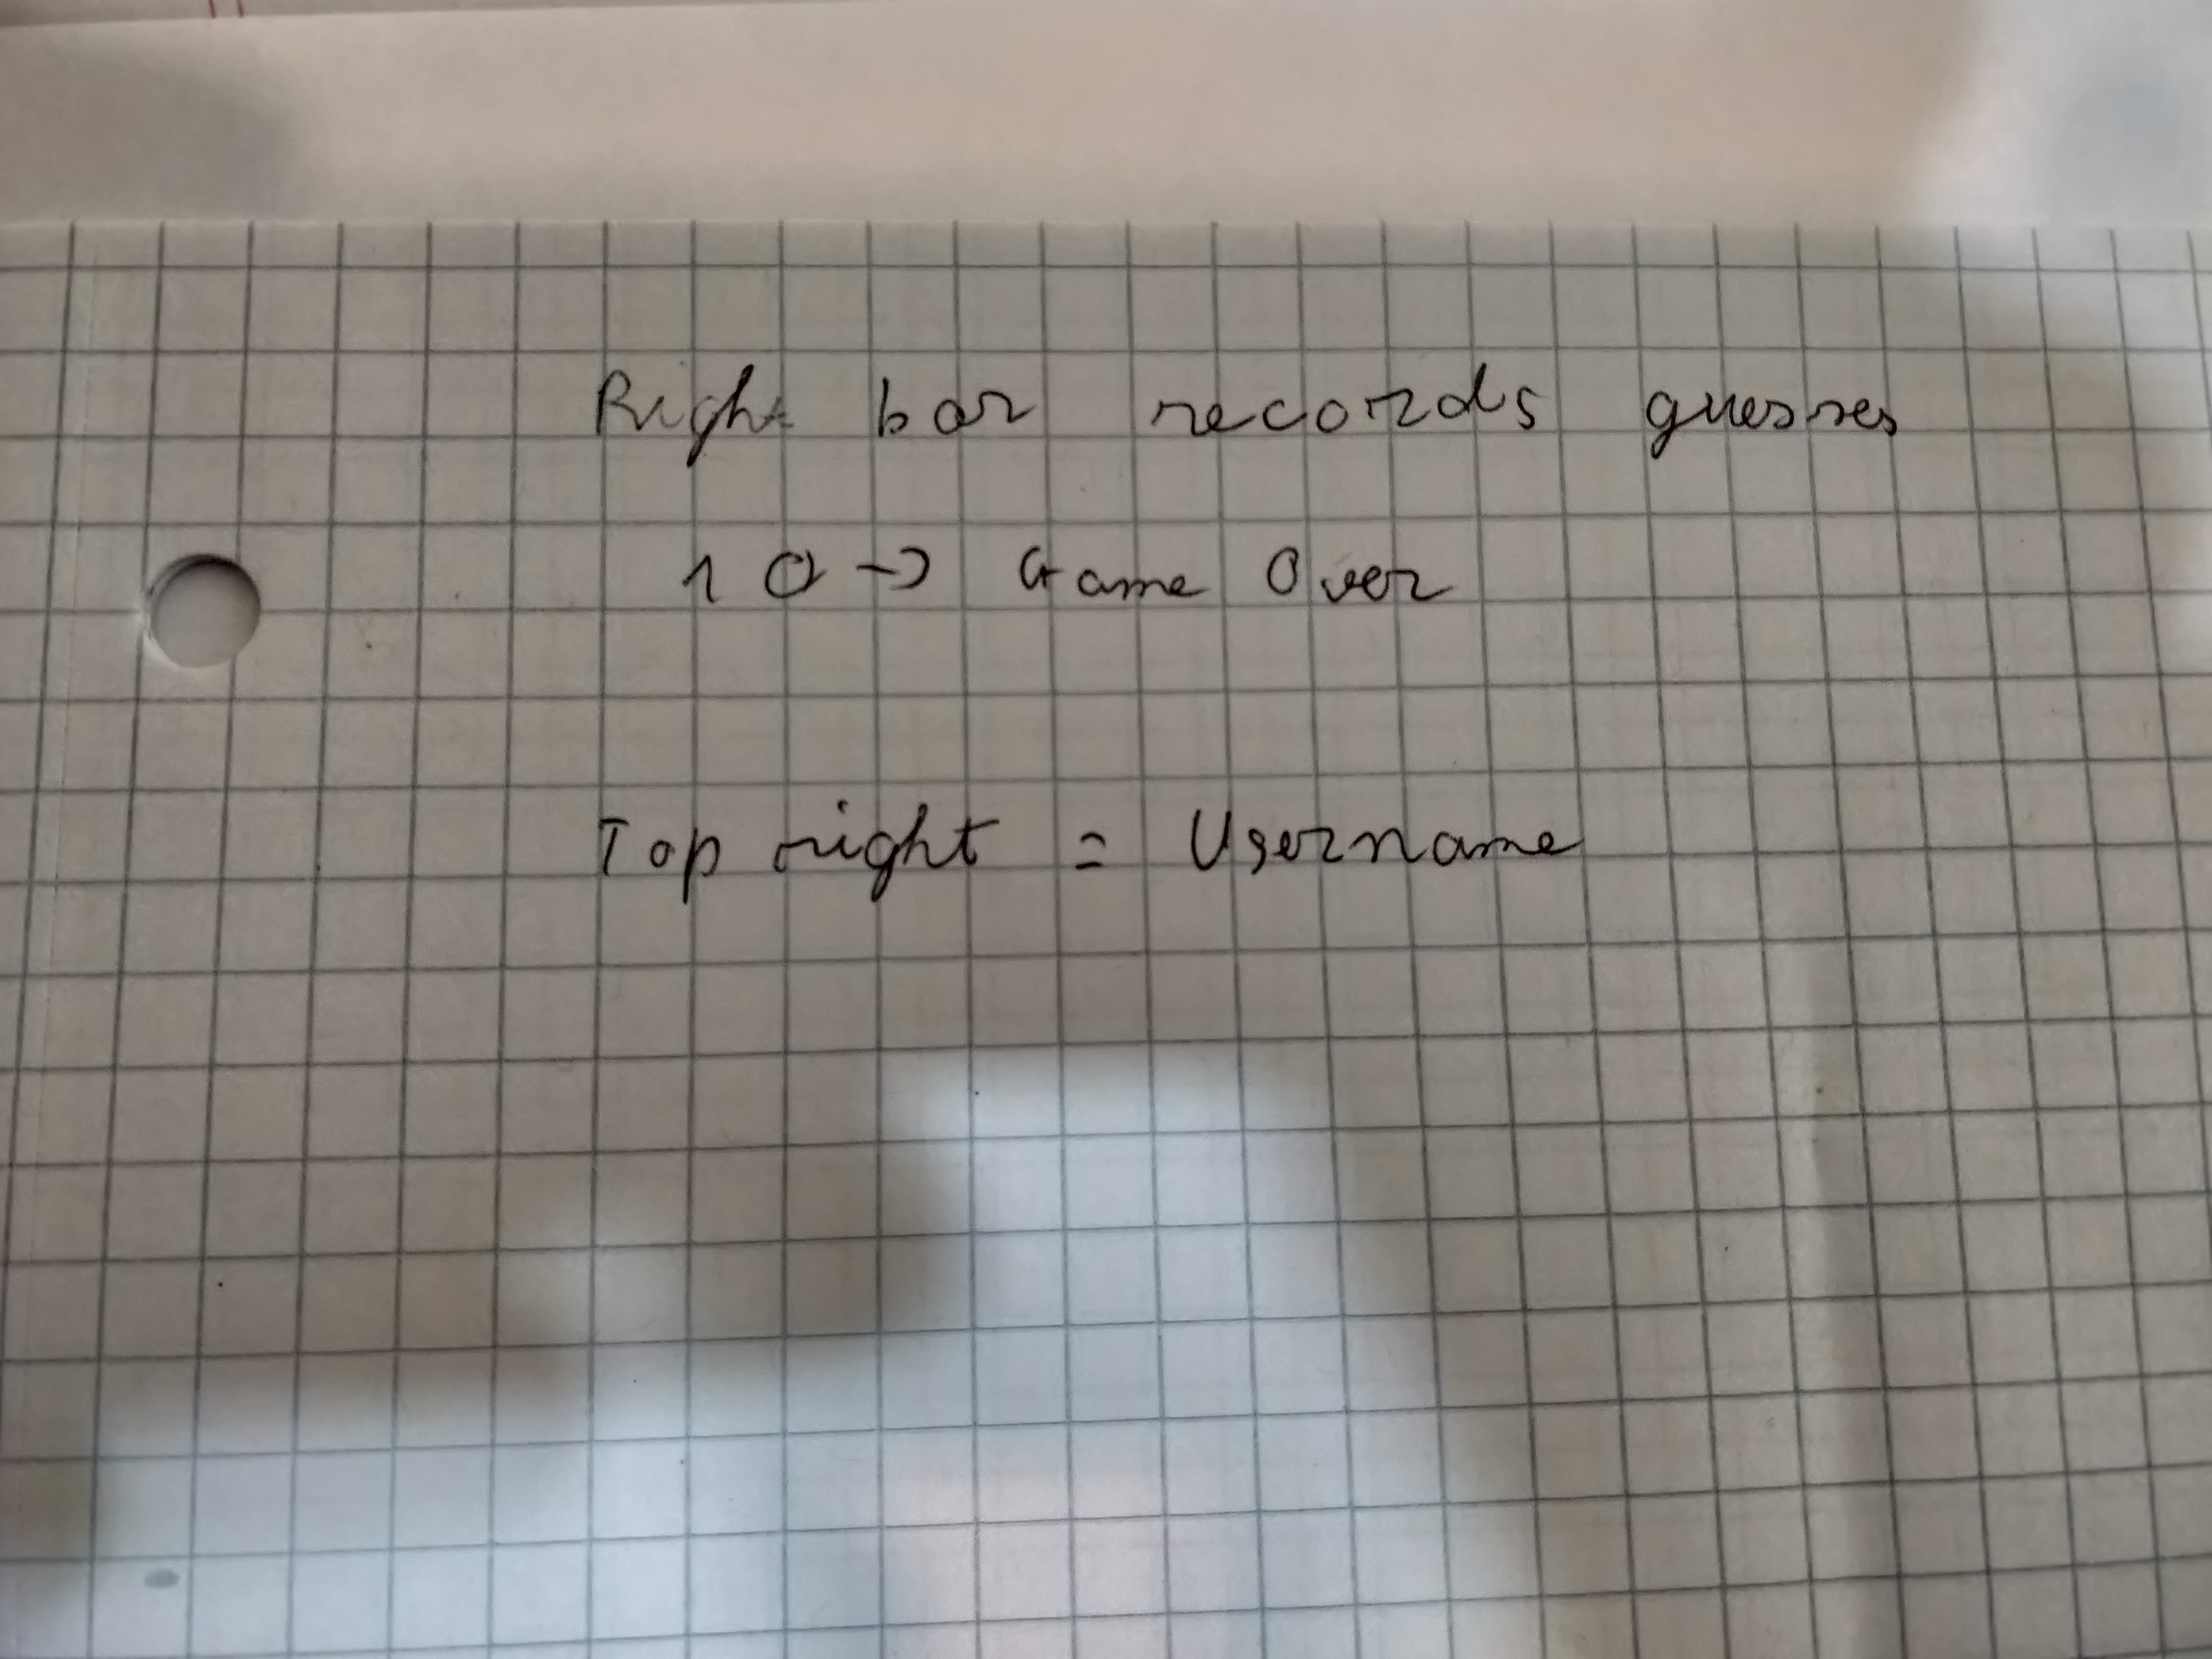 Right bar records guesses
10 -> Game Over
Top right = Username